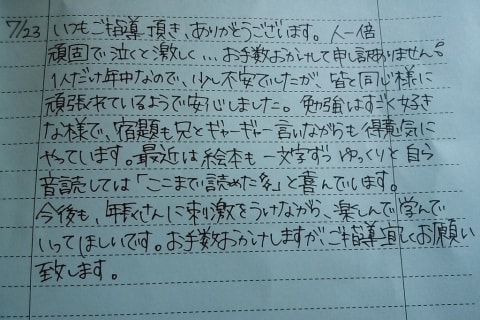 7/23 いつもご指導頂き、ありがとうございます。人一倍
頑固で泣くと激しく…お手数おかけして申し訳ありません。
1人だけ年中なので、少し不安でしたが、皆と同じ様に
頑張れているようで安心しました。勉強はすごく好き
な様で、宿題も兄とギャーギャー言いながらも得意気に
やっています。最近は絵本も一文字ずつゆっくりと自ら
音読しては「ここまで読めたよ」と喜んでいます。
今後も、年長さんに刺激をうけながら、楽しんで学んで
いってほしいです。お手数おかけしますが、ご指導宜しくお願い
致します。